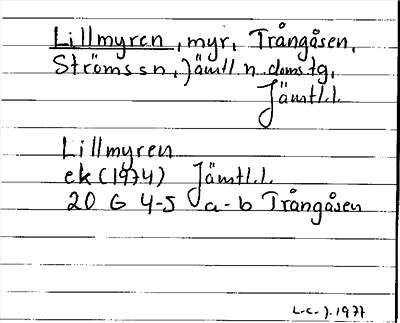 Lillmyren, myr, Trångåsen,
Ströms sn, Jämtl n. doms tg,
Jämtl.l.
Lillmyren
ek (1974) Jämtl.l.
20 G 4-5 a-b Trångåsen
L-c. J. 1977